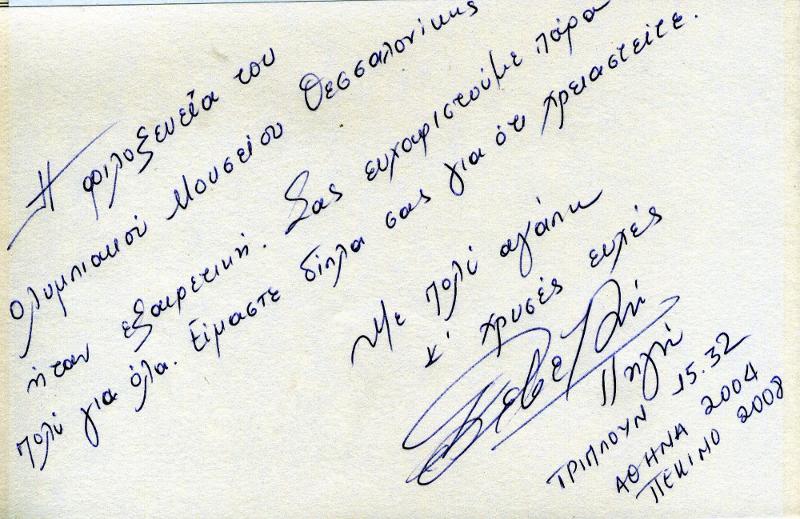 Η φιλοξενεία του
Ολυμπιακού Μουσείου Θεσσαλονίκης
ήταν εξαιρετική. Σας ευχαριστούμε πάρα
πολύ για όλα. Είμαστε δίπλα σας για ότι χρειαστείτε.
Με πολύ αγάπη
κ' χρυσές ευχές
Δεβετζή
Πηγή
ΤΡΙΠΛΟΥΝ 15.32
ΑΘΗΝΑ 2004
ΠΕΚΙΝΟ 2008